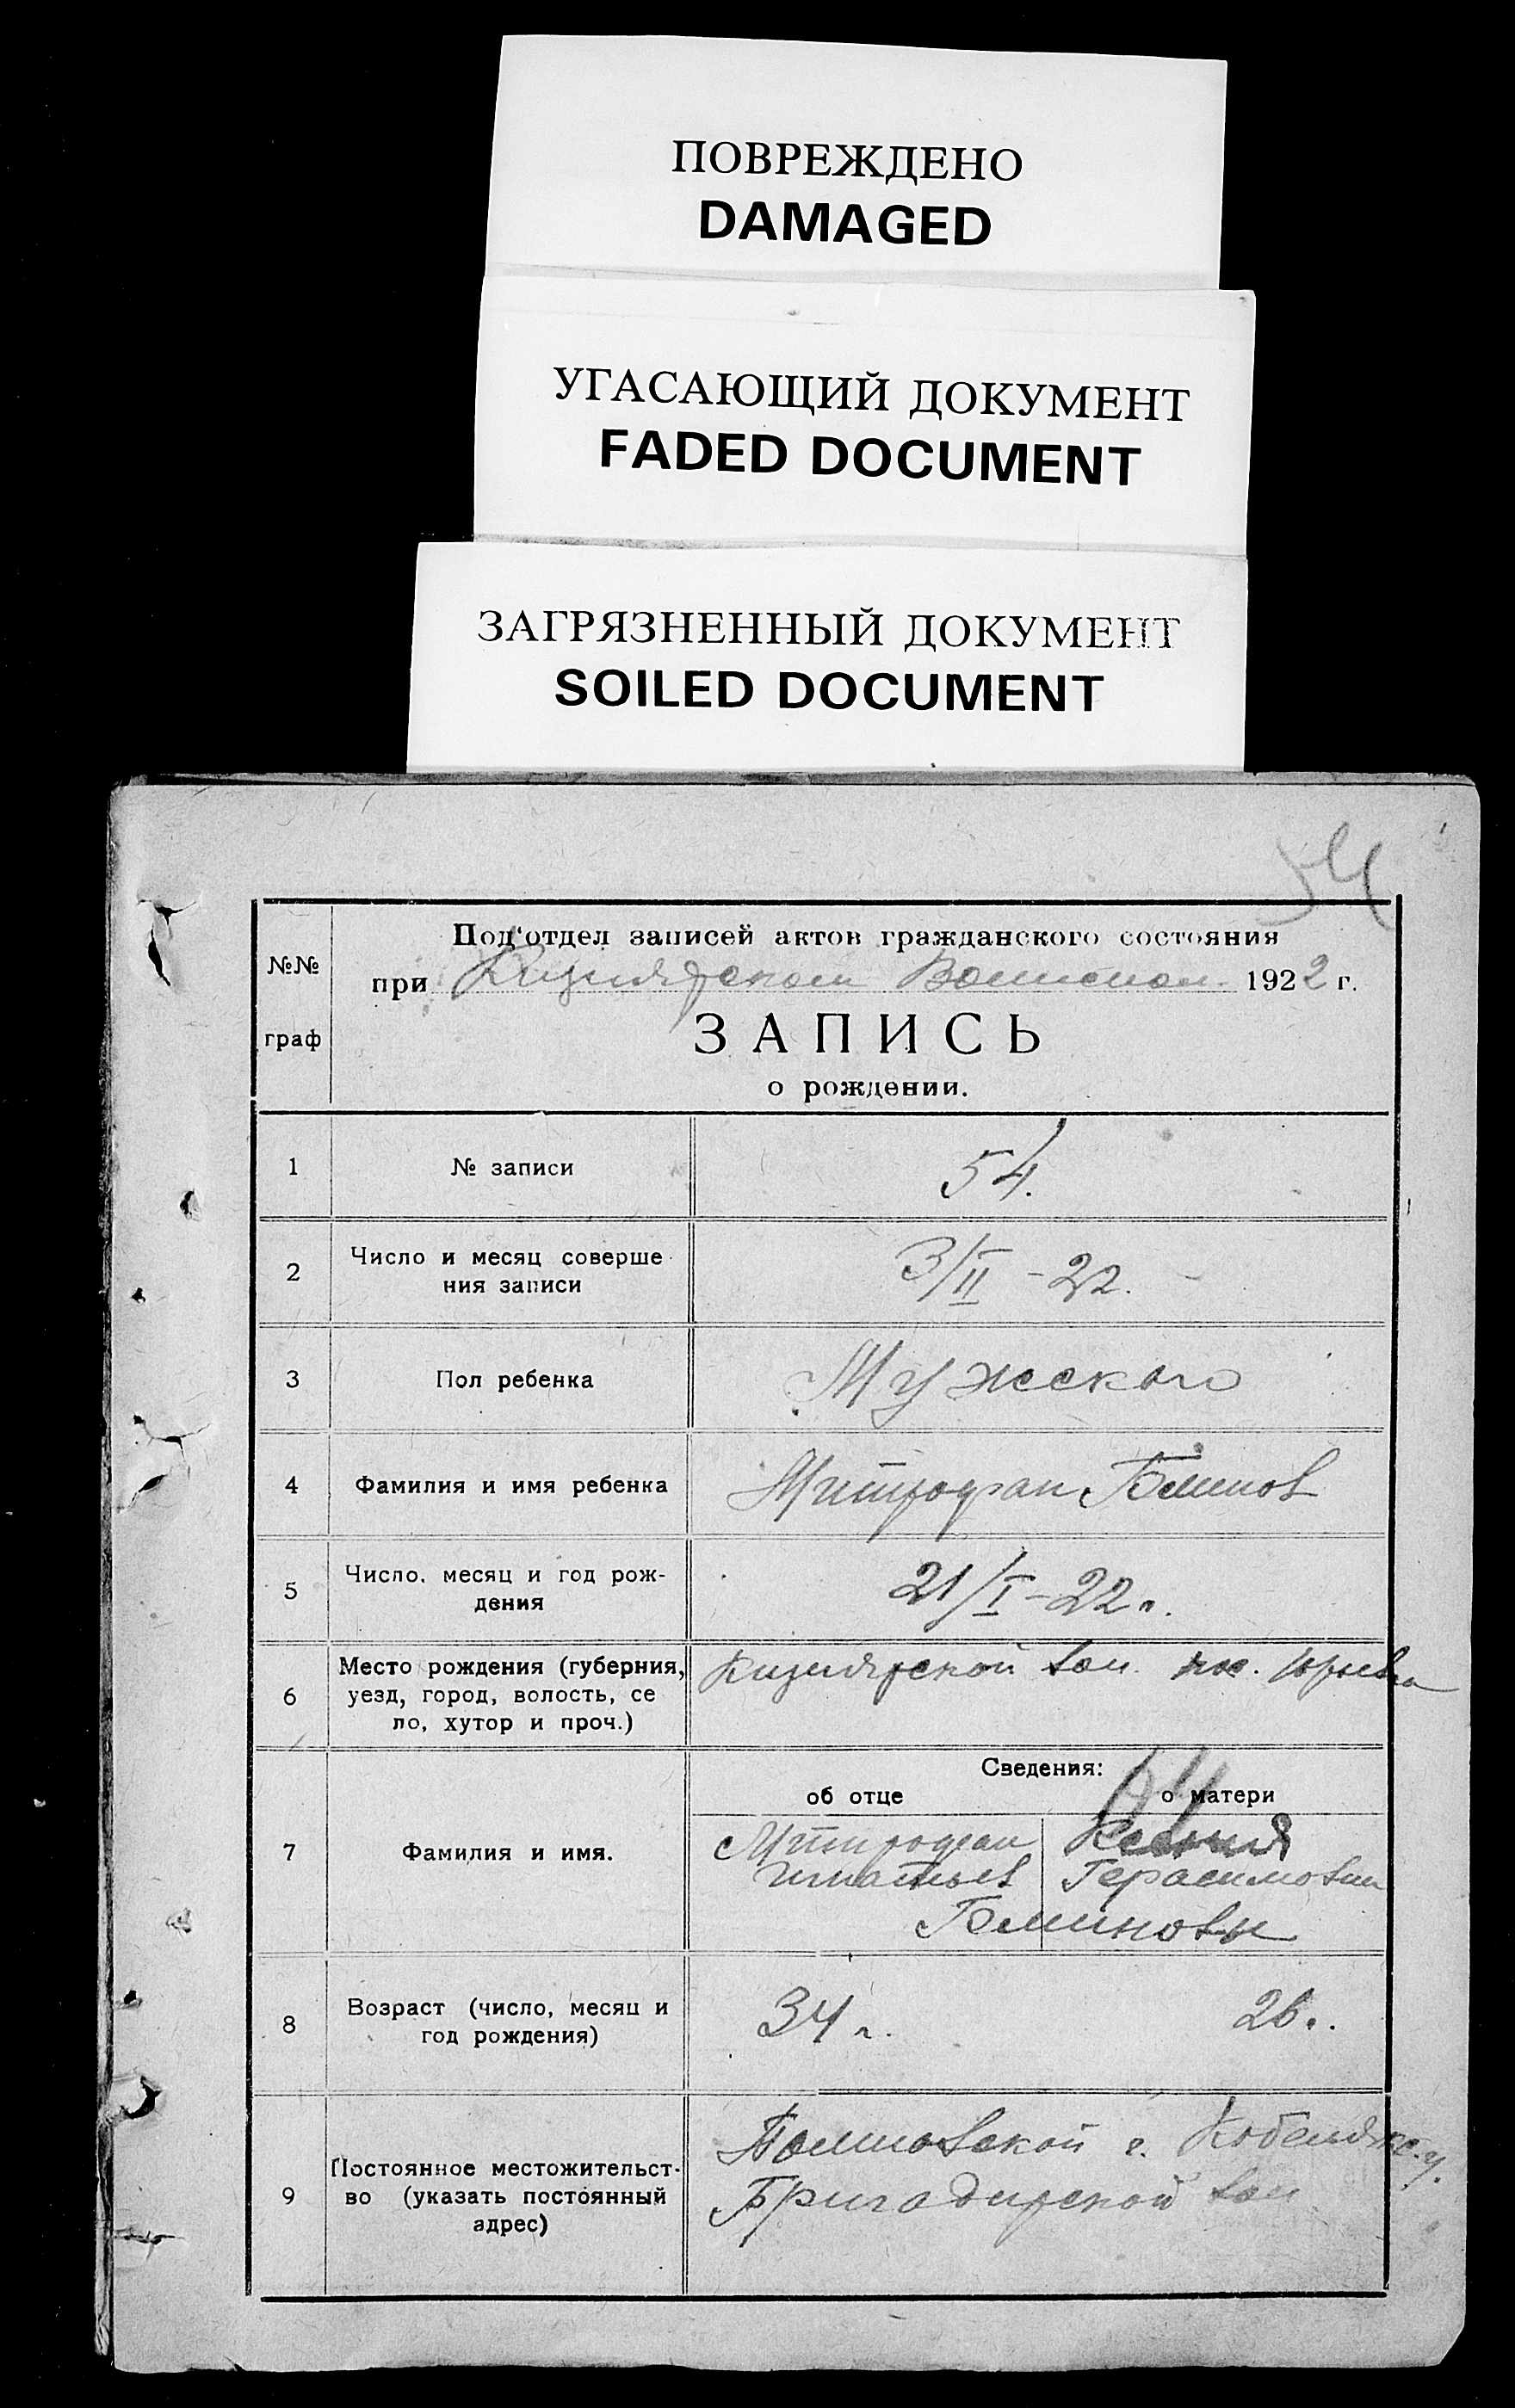 ПОВРЕЖДЕНО
DAMAGED
УГАСАЮЩИЙ ДОКУМЕНТ
FADED DOCUMENT
ЗАГРЯЗНЕННЫЙ ДОКУМЕНТ
SOILED DOCUMENT
54
№№
граф
Под'отдел записей актов гражданского состояния
при Кизиярском 1922 г.
ЗАПИСЬ
о рождении.
1 № записи 54.
2 Число и месяц соверше
ния записи 3/II - 22.
3 Пол ребенка Мужского
4 Фамилия и имя ребенка Митрофан
5 Число, месяц и год рож-
дения 21/I - 22 г.
6 Место рождения (губерния,
уезд, город, волость, се
ло, хутор и проч.) Кизиярской вол. пос. Юрьевка
Сведения:
об отце о матери
54
7 Фамилия и имя.
Митрофан Ксения
Игнатьев Герасимовна
8 Возраст (число, месяц и
год рождения) 34 г. 26 г.
9 Постоянное местожительст-
во (указать постоянный
адрес)
г. у.
Бригадирской вол